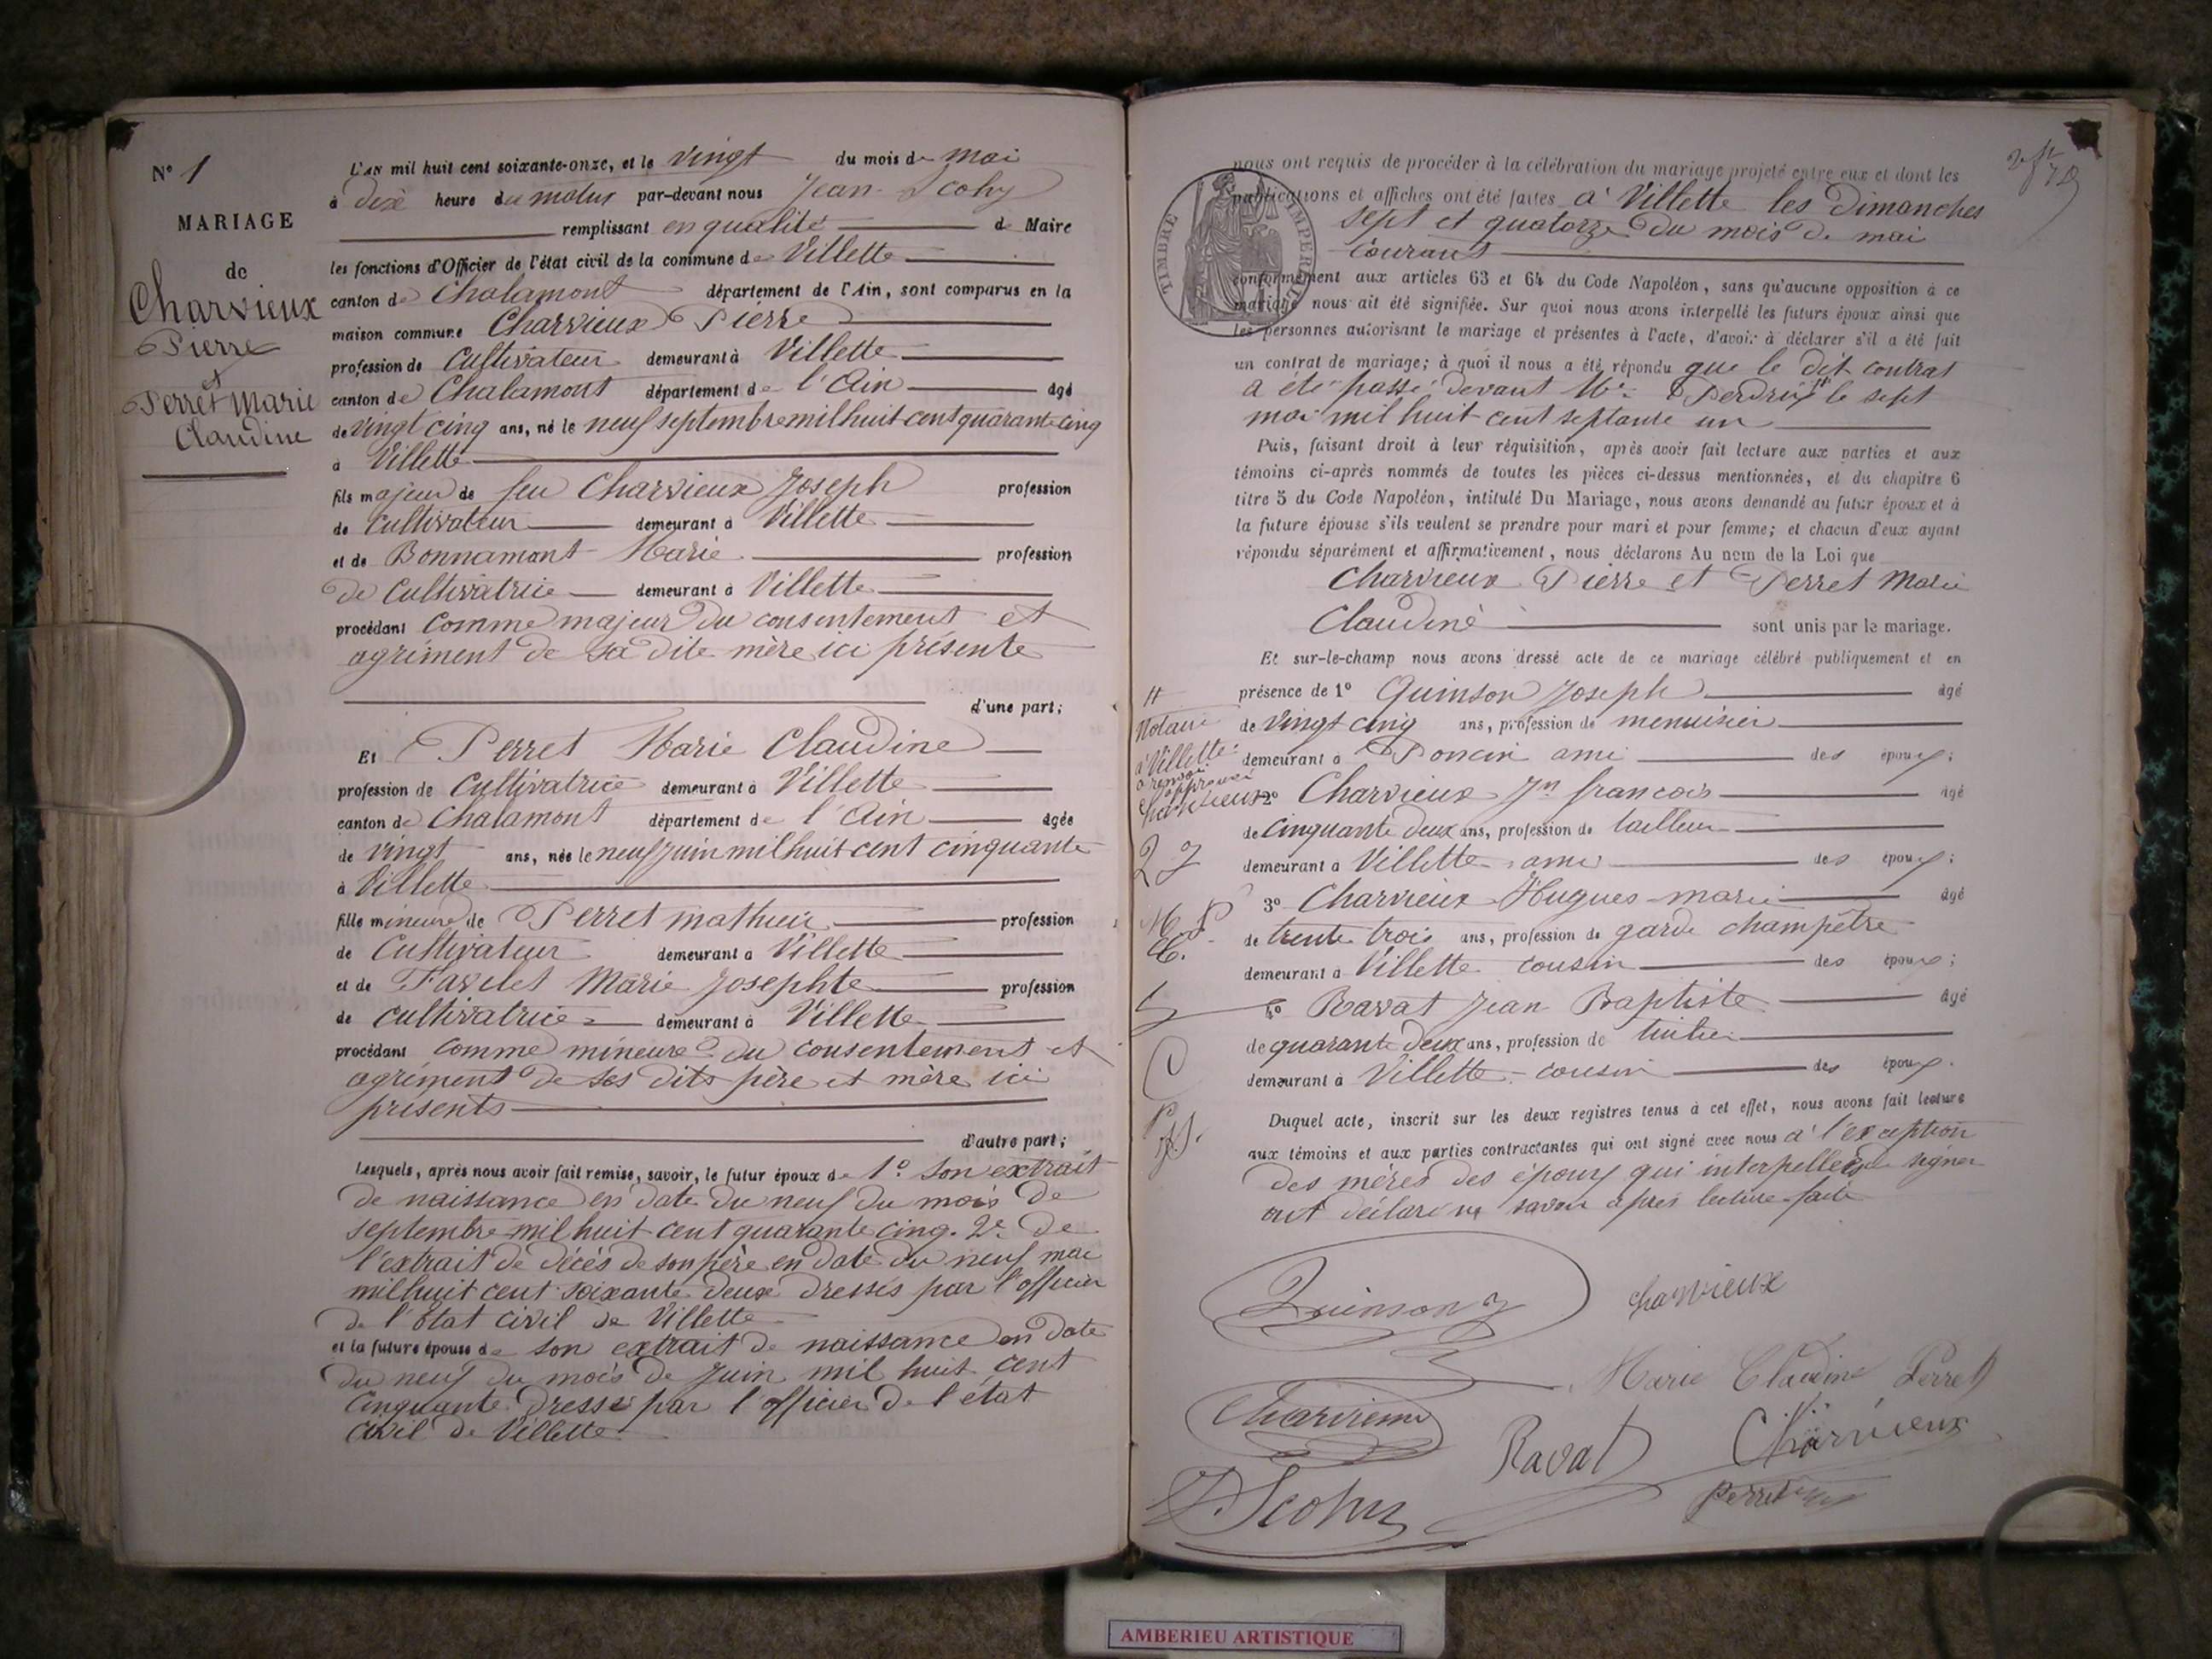 N° 1
MARIAGE
de
Charvieux
Pierre
et
Perret Marie
Claudine
L'an mil huit cent soixante-onze, et le vingt du mois de mai
à dix heure du matin par-devant nous Jean
remplissant en qualité de Maire
les fonctions d'Officier de l'état civil de la commune de Villette
canton de Chalamont département de l'Ain, sont comparus en la
maison commune Charvieux Pierre
profession de Cultivateur demeurant à Villette
canton de Chalamont département de l'Ain âgé
de vingt cinq ans, né le neuf septembre mil huit cent quarante cinq
à Villette
fils majeur de feu Charvieux Joseph profession
de Cultivateur demeurant à Villette
et de Bonnamont Marie profession
de Cultivatrice demeurant à Villette
procédant comme majeur du consentement et
agrément de sa dite mère ici présente
d'une part;
Et Perret Marie Claudine
profession de Cultivatrice demeurant à Villette
canton de Chalamont département de l'Ain âgée
de vingt ans, née le neuf juin mil huit cent cinquante
à Villette
fille mineure de Perret mathieu profession
de Cultivateur demeurant à Villette
et de Favelet Marie Josephte profession
de cultivatrice demeurant à Villette
procédant comme mineure du consentement et
agrément de ses dits père et mère ici
présents
d'autre part;
Lesquels, après nous avoir fait remise, savoir, le futur époux de 1° son extrait
de naissance en date du neuf du mois de
septembre mil huit cent quarante cinq. 2° de
l'extrait de décès de son père en date du neuf mai
mil huit cent soixante deux dressés par l'officier
de l'état civil de Villette
et la future épouse de son extrait de naissance en date
du neuf du mois de juin mil huit cent
cinquante dressé par l'officier de l'état
civil de Villette
nous ont requis de procéder à la célébration du mariage projeté entre eux et dont les
publications et affiches ont été faites à Villette les Dimanches
sept et quatorze du mois de mai
courant
TIMBRE IMPERIAL
conformément aux articles 63 et 64 du Code Napoléon, sans qu'aucune opposition à ce
mariage nous ait été signifiée. Sur quoi nous avons interpellé les futurs époux ainsi que
les personnes autorisant le mariage et présentes à l'acte, d'avoir à déclarer s'il a été fait
un contrat de mariage; à quoi il nous a été répondu que le dit contrat
a été passé devant Me Perdrix # le sept
mai mil huit cent septante un
Puis, faisant droit à leur réquisition, après avoir fait lecture aux parties et aux
témoins ci-après nommés de toutes les pièces ci-dessus mentionnées, et du chapitre 6
titre 5 du Code Napoléon, intitulé Du Mariage, nous avons demandé au futur époux et à
la future épouse s'ils veulent se prendre pour mari et pour femme; et chacun d'eux ayant
répondu séparément et affirmativement, nous déclarons Au nom de la Loi que
Charvieux Pierre et Perret Marie
Claudine sont unis par le mariage.
Et sur-le-champ nous avons dressé acte de ce mariage célébré publiquement et en
présence de 1° Quinson Joseph âgé
de vingt cinq ans, profession de menuisier
demeurant à Poncin ami des époux;
2° Charvieux Jn francois âgé
de cinquante deux ans, profession de tailleur
demeurant à Villette ami des époux;
3° Charvieux Hugues marie âgé
de trente trois ans, profession de garde champêtre
demeurant à Villette cousin des époux;
4° Ravat Jean Baptiste âgé
de quarante deux ans, profession de
demeurant à Villette cousin des époux.
#
Notaire
à Villette
renvoi
approuvé
Charvieux
Duquel acte, inscrit sur les deux registres tenus à cet effet, nous avons fait lecture
aux témoins et aux parties contractantes qui ont signé avec nous à l'exception
des mères des époux qui interpellées de signer
ont déclaré ne savoir après lecture faite
Quinson J
charvieux
Marie Claudine Perret
Charvieux
Ravat
Charvieux
Perret
AMBERIEU ARTISTIQUE